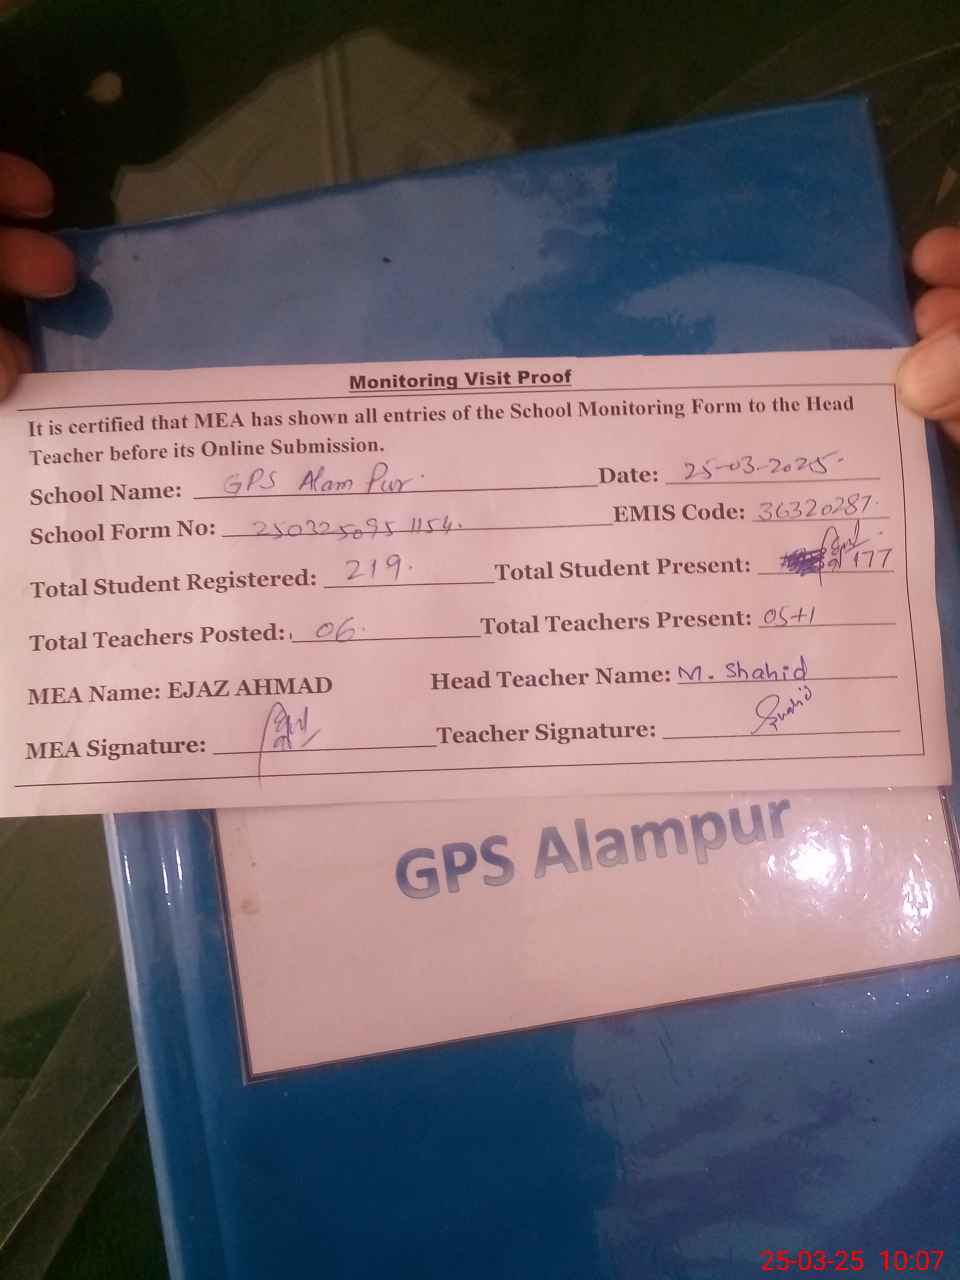 Monitoring Visit Proof
It is certified that MEA has shown all entries of the School Monitoring Form to the Head
Teacher before its Online Submission.
School Name: GPS Alam Pur. Date: 25-03-2025.
School Form No: 250325095 1154. EMIS Code: 36320287.
Total Student Registered: 219. Total Student Present: 177
Total Teachers Posted: 06. Total Teachers Present: 05+1
MEA Name: EJAZ AHMAD Head Teacher Name: M. Shahid
MEA Signature: Teacher Signature: Shahid
GPS Alampur
25-03-25 10:07